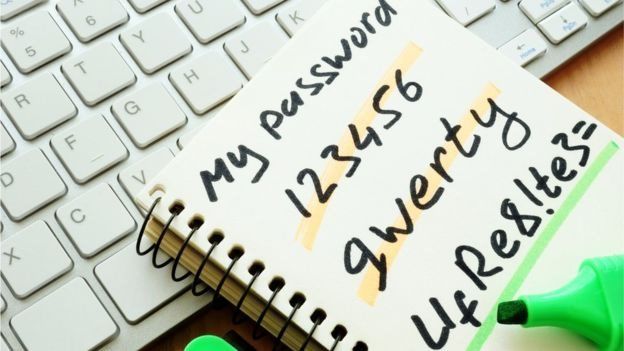 My password
123456
qwerty
UfRe8!te3=
%
5
6
R
T
Y
U
F
G
H
D
C
V
X